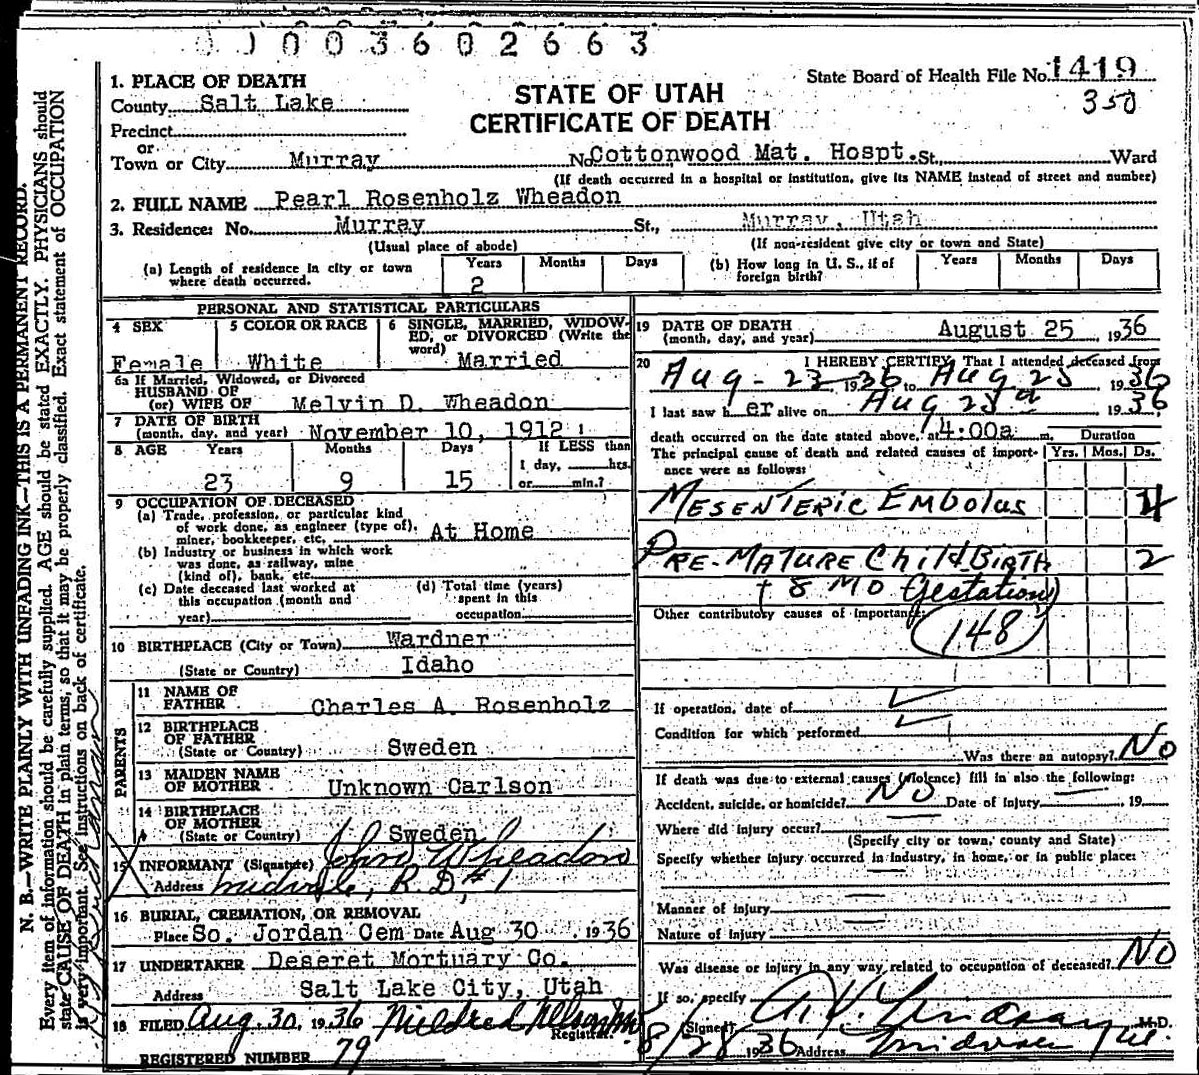 0 0 0 3 6 0 2 6 6 3
1. PLACE OF DEATH
County Salt Lake
Precinct
or
Town or City Murray
STATE OF UTAH
CERTIFICATE OF DEATH
State Board of Health File No. 1419
350
No. Cottonwood Mat. Hospt. St., Ward
(If death occurred in a hospital or institution, give its NAME instead of street and number)
2. FULL NAME Pearl Rosenholz Wheadon
3. Residence: No. Murray St., Murray, Utah
(Usual place of abode) (If non-resident give city or town and State)
(a) Length of residence in city or town where death occurred. Years 2 Months Days
(b) How long in U. S., if of foreign birth? Years Months Days
PERSONAL AND STATISTICAL PARTICULARS
4 SEX Female
5 COLOR OR RACE White
6 SINGLE, MARRIED, WIDOWED, or DIVORCED (Write the word) Married
6a If Married, Widowed, or Divorced
HUSBAND OF
(or) WIFE OF Melvin D. Wheadon
7 DATE OF BIRTH
(month, day, and year) November 10, 1912
8 AGE Years Months Days If LESS than
1 day, hrs.
23 9 15 or min.?
9 OCCUPATION OF DECEASED
(a) Trade, profession, or particular kind
of work done, as engineer (type of),
miner, bookkeeper, etc. At Home
(b) Industry or business in which work
was done, as railway, mine
(kind of), bank, etc.
(c) Date deceased last worked at
this occupation (month and
year)
(d) Total time (years)
spent in this
occupation
10 BIRTHPLACE (City or Town) Wardner
(State or Country) Idaho
PARENTS
11 NAME OF
FATHER Charles A. Rosenholz
12 BIRTHPLACE
OF FATHER
(State or Country) Sweden
13 MAIDEN NAME
OF MOTHER Unknown Carlson
14 BIRTHPLACE
OF MOTHER
(State or Country) Sweden
15 INFORMANT (Signature) John Wheadon
Address Midvale, R.D. #1
16 BURIAL, CREMATION, OR REMOVAL
Place So. Jordan Cem Date Aug 30 1936
17 UNDERTAKER Deseret Mortuary Co.
Address Salt Lake City, Utah
18 FILED Aug. 30, 1936 Mildred
Registrar.
REGISTERED NUMBER 79
19 DATE OF DEATH
(month, day, and year) August 25 1936
20 I HEREBY CERTIFY, That I attended deceased from
Aug - 23 1936 to Aug 25 1936
I last saw her alive on Aug 25th 1936
death occurred on the date stated above, at 4:00a m. Duration
The principal cause of death and related causes of importance were as follows: Yrs. Mos. Ds.
MESENTERIC EMBOLUS
PRE-MATURE Child BIRTH 2
8 MO Gestation
Other contributory causes of importance:
148
If operation, date of
Condition for which performed
Was there an autopsy? No
If death was due to external causes (violence) fill in also the following:
Accident, suicide, or homicide? No Date of injury 19
Where did injury occur?
(Specify city or town, county and State)
Specify whether injury occurred in industry, in home, or in public place:
Manner of injury
Nature of injury
Was disease or injury in any way related to occupation of deceased? No
If so, specify
(Signed) Lindsay M.D.
8/28 1936 Address
N. B.—WRITE PLAINLY WITH UNFADING INK—THIS IS A PERMANENT RECORD.
Every item of information should be carefully supplied. AGE should be stated EXACTLY. PHYSICIANS should
state CAUSE OF DEATH in plain terms, so that it may be properly classified. Exact statement of OCCUPATION
is very important. See instructions on back of certificate.